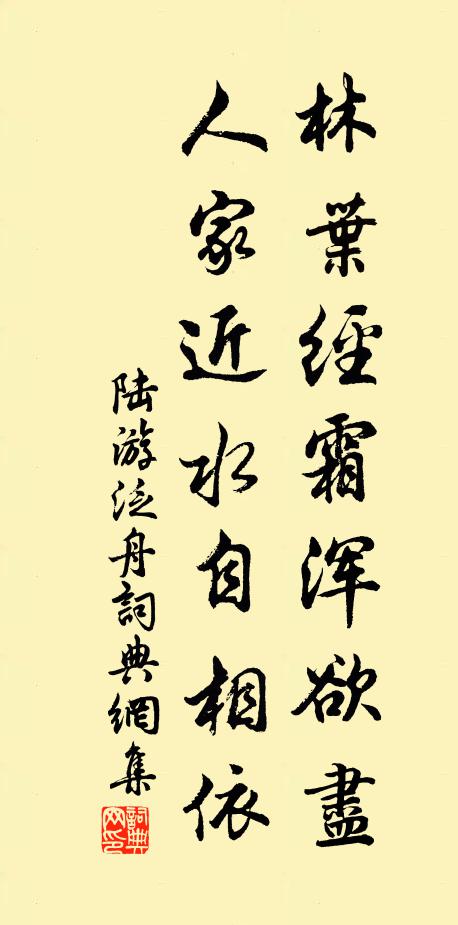 林葉經霜渾欲盡
人家近水自相依
陆游泛舟詞典網集
詞典
网印